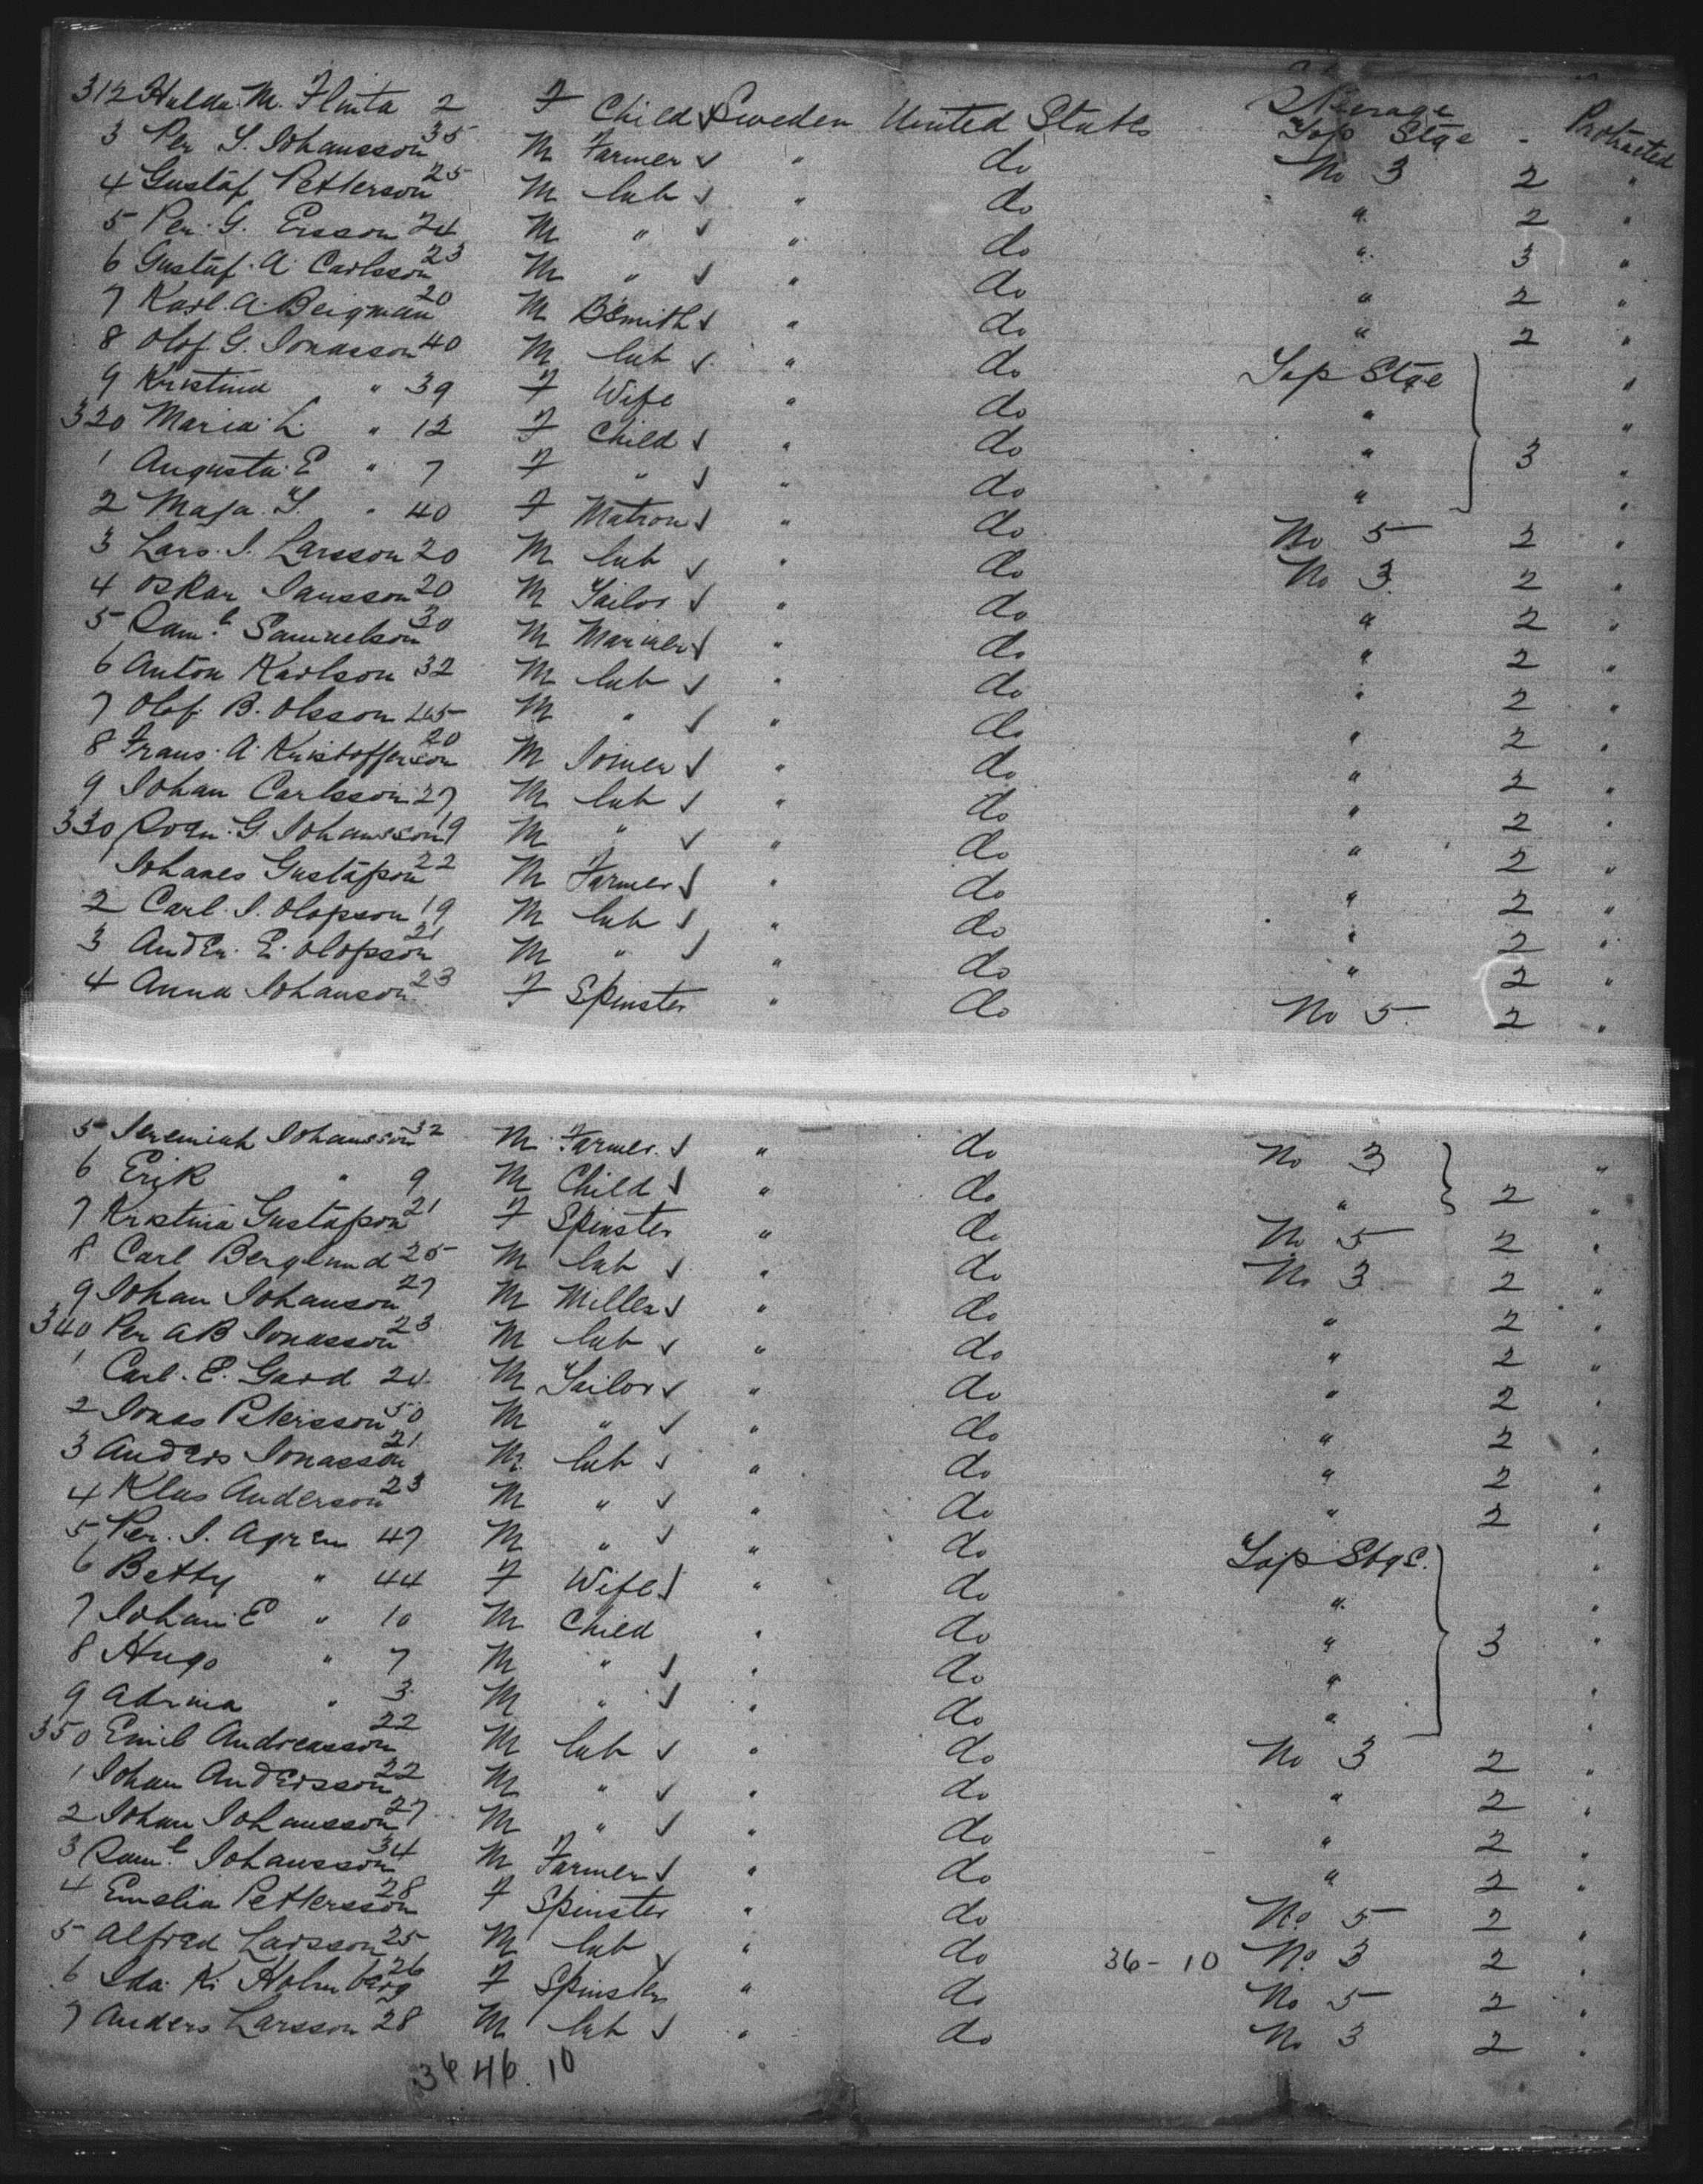 Steerage
312 Hulda M. Flinta 2 F Child Sweden United States Top Stge - Protracted
3 Per S. Johansson 35 M Farmer " do No 3 2 "
4 Gustaf Petterson 25 M Lab " do " 2 "
5 Per G. Ersson 24 M " " do " 3 "
6 Gustaf A Carlsson 23 M " " do " 2 "
7 Karl A Bergman 20 M B Smith " do " 2 "
8 Olof G. Jonasson 40 M Lab " do Top Stge "
9 Kristina " 39 F Wife " do " "
320 Maria L. " 12 F Child " do " 3 "
1 Augusta E " 7 F " " do " "
2 Maja S. " 40 F Matron " do No 5 2 "
3 Lars J. Larsson 20 M Lab " do No 3 2 "
4 Oskar Jansson 20 M Tailor " do " 2 "
5 Saml Samuelson 30 M Mariner " do " 2 "
6 Anton Karlson 32 M Lab " do " 2 "
7 Olof B. Olsson 45 M " " do " 2 "
8 Frans A Kristofferson 20 M Joiner " do " 2 "
9 Johan Carlsson 27 M Lab " do " 2 "
330 G. Johansson 19 M " " do " 2 "
1 Johanes Gustafson 22 M Farmer " do " 2 "
2 Carl J. Olofson 19 M Lab " do " 2 "
3 Ander E. Olofson 21 M " " do " 2 "
4 Anna Johanson 23 F Spinster " do No 5 2 "
5 Jeremiah Johansson 32 M Farmer " do No 3 "
6 Erik " 9 M Child " do " 2 "
7 Kristina Gustafson 21 F Spinster " do No 5 2 "
8 Carl Berglund 25 M Lab " do No 3 2 "
9 Johan Johanson 27 M Miller " do " 2 "
340 Per A B Jonasson 23 M Lab " do " 2 "
1 Carl E. Gard 24 M Tailor " do " 2 "
2 Jonas Petersson 50 M " " do " 2 "
3 Anders Jonasson 21 M Lab " do " 2 "
4 Klas Anderson 23 M " " do " 2 "
5 Per J. Agren 47 M " " do Top Stge. "
6 Betty " 44 F Wife " do " "
7 Johan E " 10 M Child " do " 3 "
8 Hugo " 7 M " " do " "
9 Adrina " 3 M " " do " "
350 Emil Andreasson 22 M Lab " do No 3 2 "
1 Johan Andersson 22 M " " do " 2 "
2 Johan Johansson 27 M " " do " 2 "
3 Saml Johansson 34 M Farmer " do " 2 "
4 Emelia Pettersson 28 F Spinster " do No 5 2 "
5 Alfred Larsson 25 M Lab " do 36-10 No 3 2 "
6 Ida K. Holmberg 26 F Spinster " do No 5 2 "
7 Anders Larsson 28 M Lab " do No 3 2 "
36.46.10